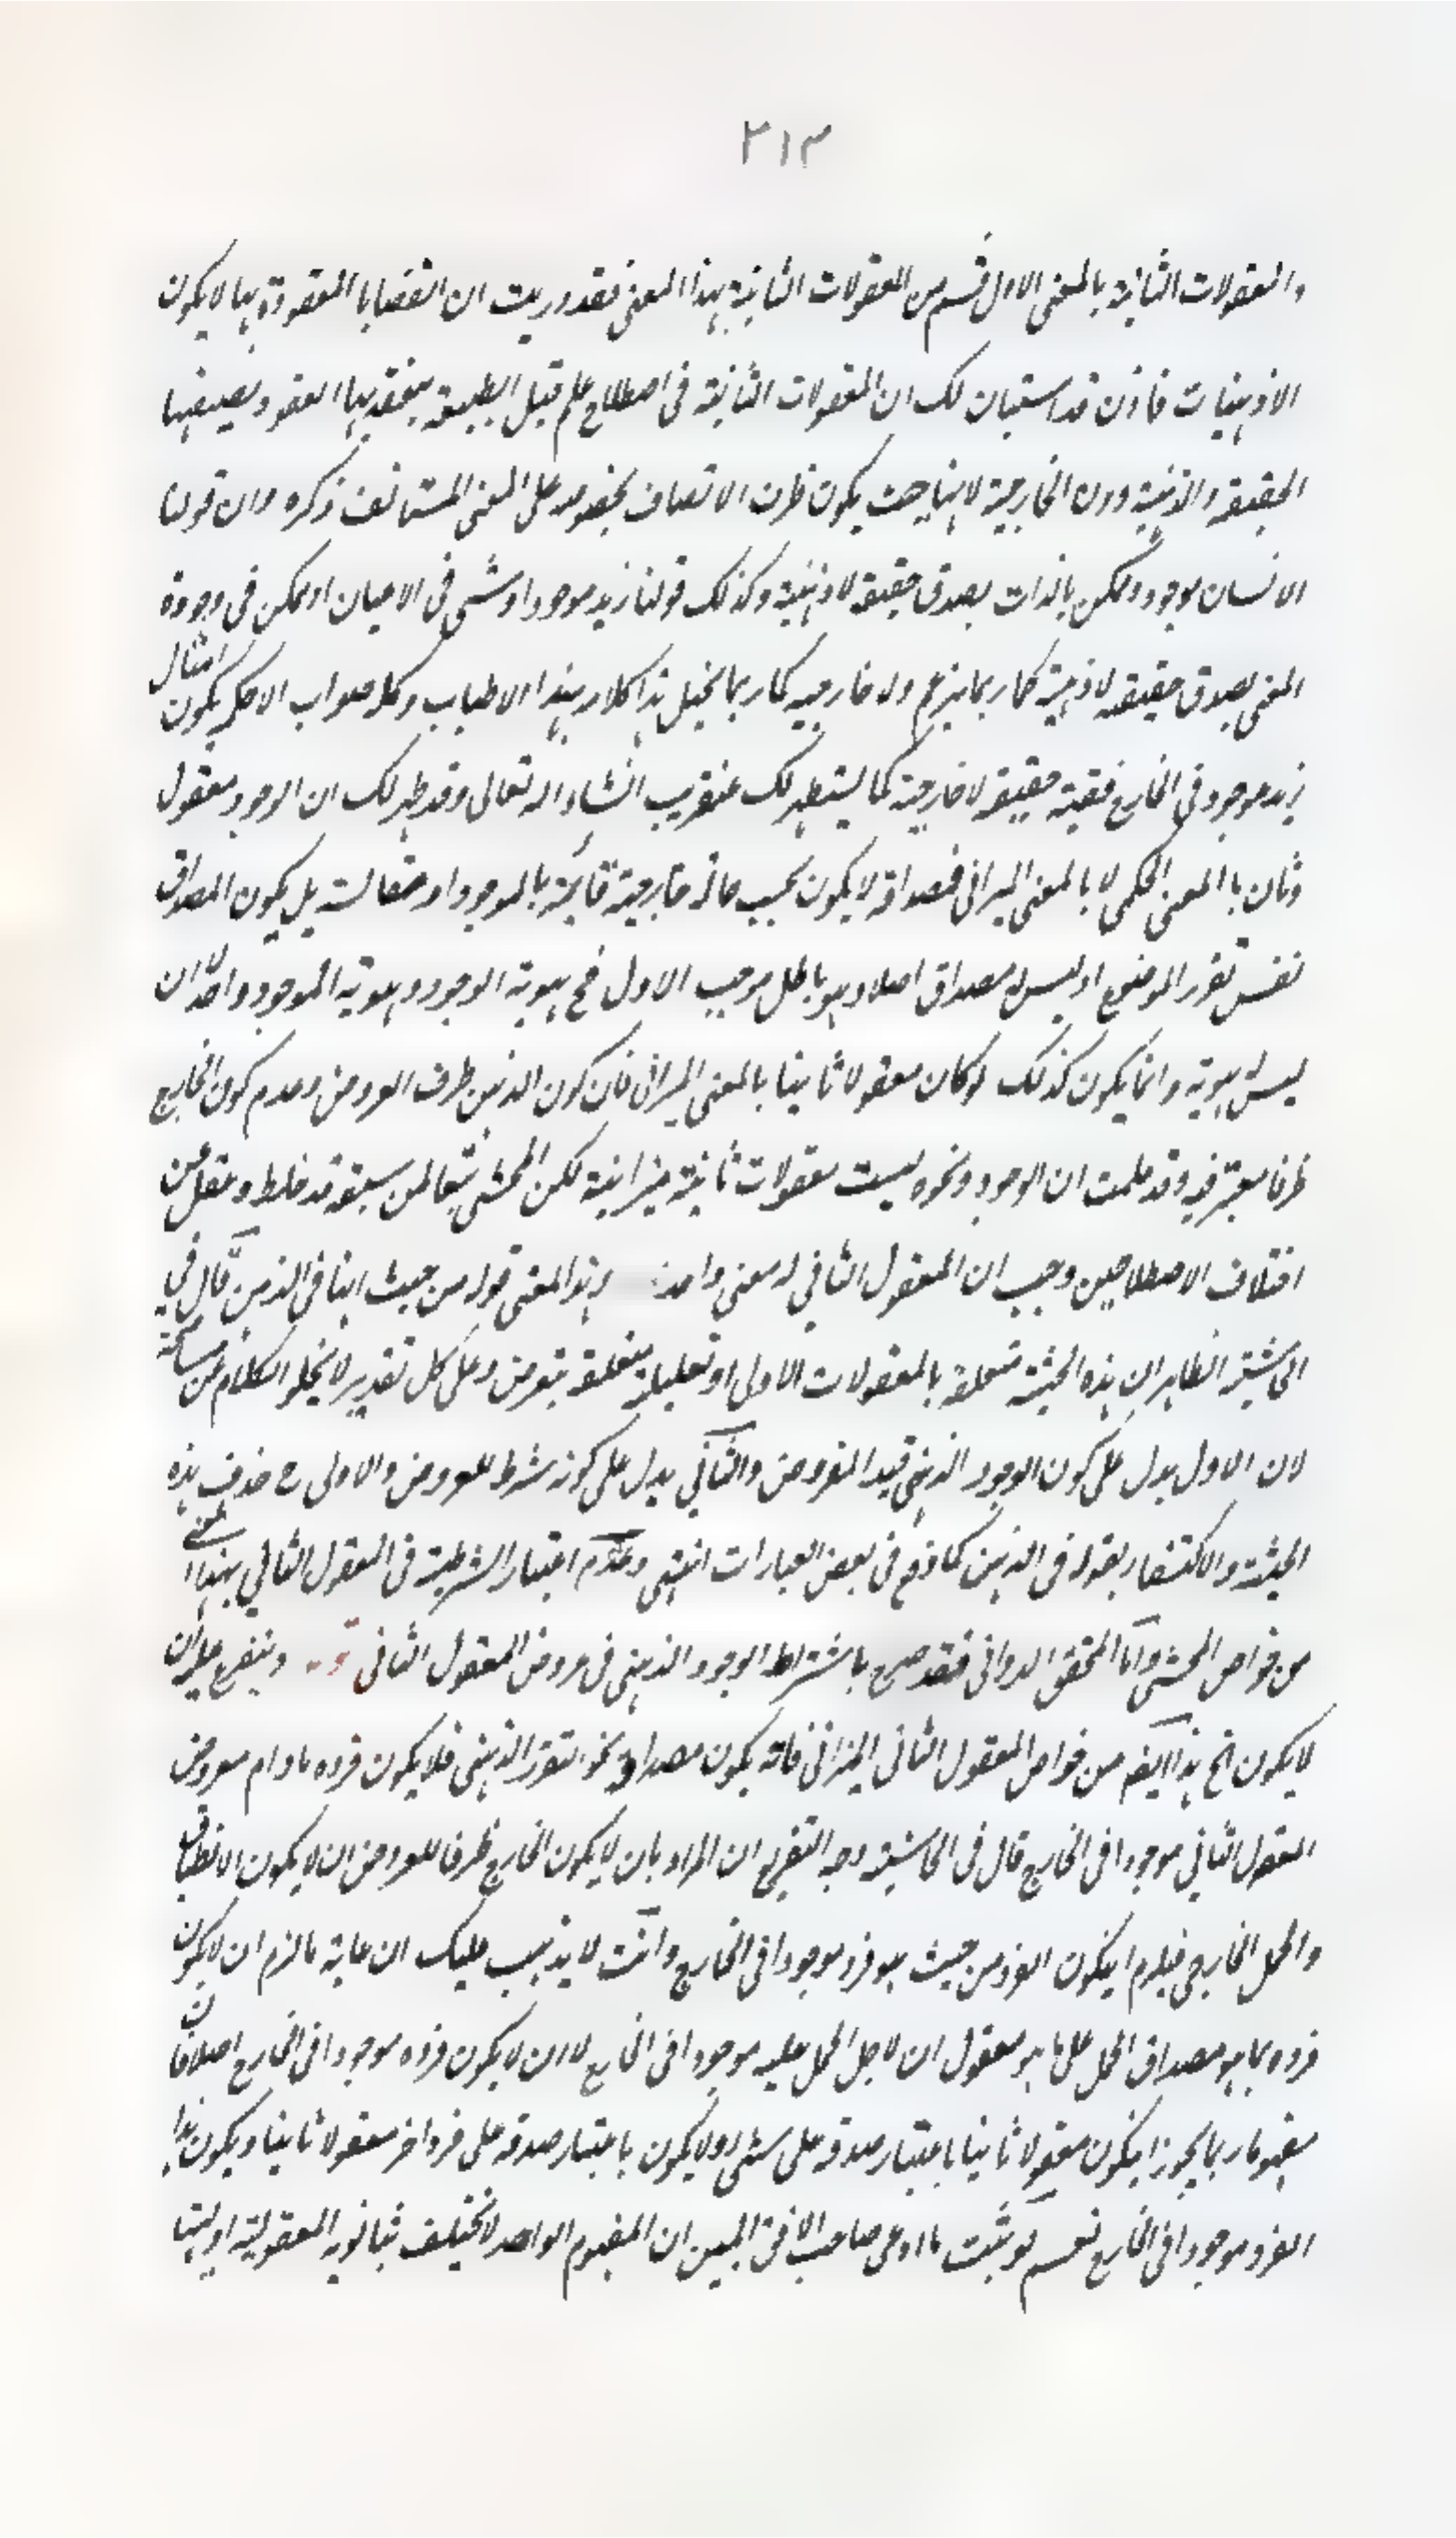 ٢١٣
والمعقولات الثانية بالمعنى الاول قسم من المعقولات الثانية بهذا المعنى فقد دريت ان القضايا المعقودة بها لا يكون
الا ذهنيات فاذن قد استبان لك ان المعقولات الثانية في اصطلاح علم قبل الطبيعة ينعقد بها العقود بصيغتها
الحقيقة والذهنية دون الخارجية لانها حيث يكون ظرف الاتصاف بخصوصه على المعنى المستانف ذكره وان قولنا
الانسان موجود وممكن بالذات يصدق حقيقة لا ذهنية وكذلك قولنا زيد موجود او شي في الاعيان او ممكن في وجوده
المعنى يصدق حقيقة لا ذهنية كما ربما يزعم ولا خارجية كما ربما يخيل هذا كلامه بهذا الاطناب وكله صواب الا حكم يكون امثال
زيد موجود في الخارج قضية حقيقة لا خارجية كما ليستظهر لك عنقريب انشاء اله تعالى وقد ظهر لك ان الوجود معقول
وثان با المعنى الحكمي لا بالمعنى الميزاني فمصداقه لا يكون بحسب حالة خارجية قائمة بالموجود او مقالسة بل يكون المصداق
نفس تقرر الموضوع او ليس له مصداق اصلا وهو باطل موجب الاول فح هوية الوجود وهوية الموجود واحدة لا ان
ليس له هوية وانما يكون كذلك لو كان معقولا ثانيا بالمعنى الميزاني فان كون الذهن ظرف العروض وعدم كون الخارج
ظرفا معتبر فيه وقد علمت ان الوجود ونحوه ليست معقولات ثانية ميزانية لكن المحشي تبعا لمن سبقه قد خلط وغفل عن
اختلاف الاصطلاحين وحسب ان المعقول الثاني له معنى واحد وهذا المعنى قوله من حيث انها في الذهن قال في
الحاشية الظاهر ان هذه الحيثية متعلقة بالمعقولات الاولى او تعليلية متعلقة بتعرض وعلى كل تقدير لا يخلو الكلام عن مسامحة
لان الاول يدل على كون الوجود الذهني قيد المعروض والثاني يدل على كونه شرط للعروض والاولى ح حذف هذه
الحيثية والاكتفاء بقوله في الذهن كما وقع في بعض العبارات انتهى وعدم اعتبار الشرطية في المعقول الثاني بهذا المعنى
من خواص المحشي واما المحقق الدواني فقد صرح باشتراط الوجود الذهني في عروض المعقول الثاني قوله ويتفرع عليه ان
لا يكون الخ هذا ايضم من خواص المعقول الثاني الميزاني فانه يكون مصداقه نحو التقرر الذهني فلا يكون فرده ما دام معروض
المعقول الثاني موجودا في الخارج قال في الحاشية وجه التفريع ان المراد بان لا يكون الخارج ظرفا للعروض ان لا يكون الانطباق
والحمل الخارجي فيلزم ايكون الفرد من حيث هو فرد موجودا في الخارج وانت لا يذهب عليك ان غاية ما لزم ان لا يكون
فرده بما هو مصداق الحمل على ما هو معقول ان لاجل الحمل عليه موجودا في الخارج لا ان لا يكون فرده موجودا في الخارج اصلا فان
مفهوما ربما يجوز ايكون معقولا ثانيا باعتبار صدقه على شئ ولا يكون باعتبار صدقه على فرد اخر معقولا ثانيا ويكون هذا
الفرد موجودا في الخارج نعم لو ثبت ما ادعى صاحب الافق المبين ان المفهوم الواحد لا يختلف بثانوية المعقولية اوليتها